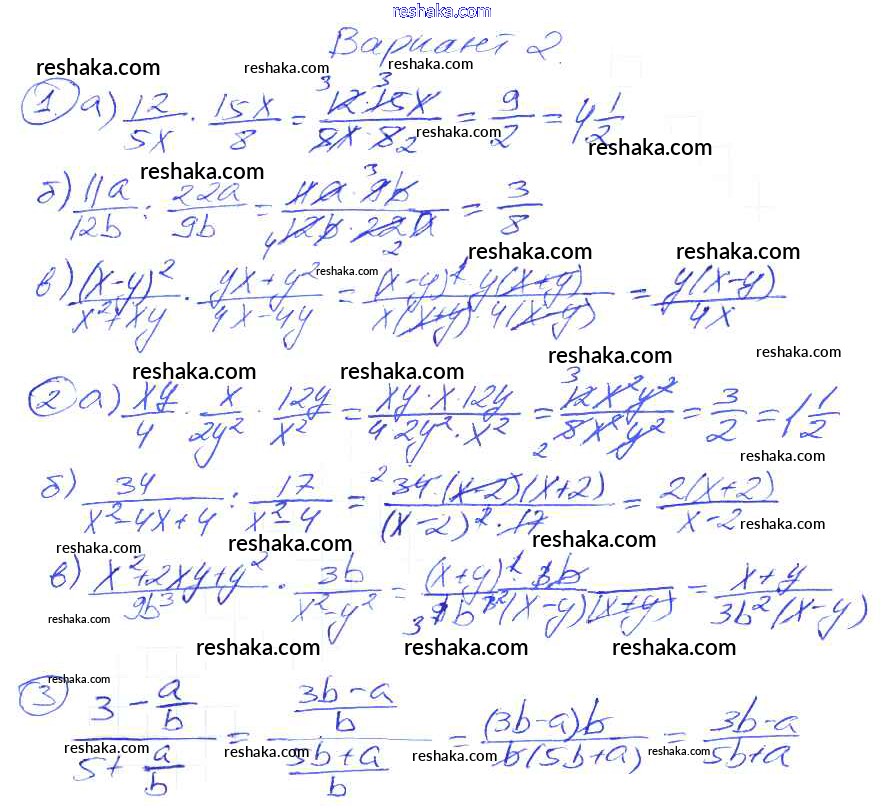 reshaka.com
Вариант 2
reshaka.com reshaka.com reshaka.com
1 а) 12/5x · 15x/8 = 12·15x/8x·8 = 9/2 = 4 1/2
reshaka.com reshaka.com reshaka.com
reshaka.com
б) 11a/12b : 22a/9b = 11a·9b/12b·22a = 3/8
reshaka.com reshaka.com reshaka.com
в) (x-y)²/x²+xy · yx+y²/4x-4y = (x-y)² y(x+y)/x(x+y)·4(x-y) = y(x-y)/4x
reshaka.com
reshaka.com reshaka.com
2 а) xy/4 · x/2y² · 12y/x² = xy·x·12y/4·2y²·x² = 12x²y²/8x²y² = 3/2 = 1 1/2
reshaka.com
б) 34/x²-4x+4 : 17/x²-4 = 34·(x-2)(x+2)/(x-2)²·17 = 2(x+2)/x-2
reshaka.com
reshaka.com reshaka.com reshaka.com
в) x²+2xy+y²/9b³ · 3b/x²-y² = (x+y)²·3b/9b³(x-y)(x+y) = x+y/3b²(x-y)
reshaka.com
reshaka.com reshaka.com reshaka.com
reshaka.com
3 3-a/b/5+a/b = 3b-a/b/5b+a/b = (3b-a)b/b(5b+a) = 3b-a/5b+a
reshaka.com reshaka.com reshaka.com reshaka.com